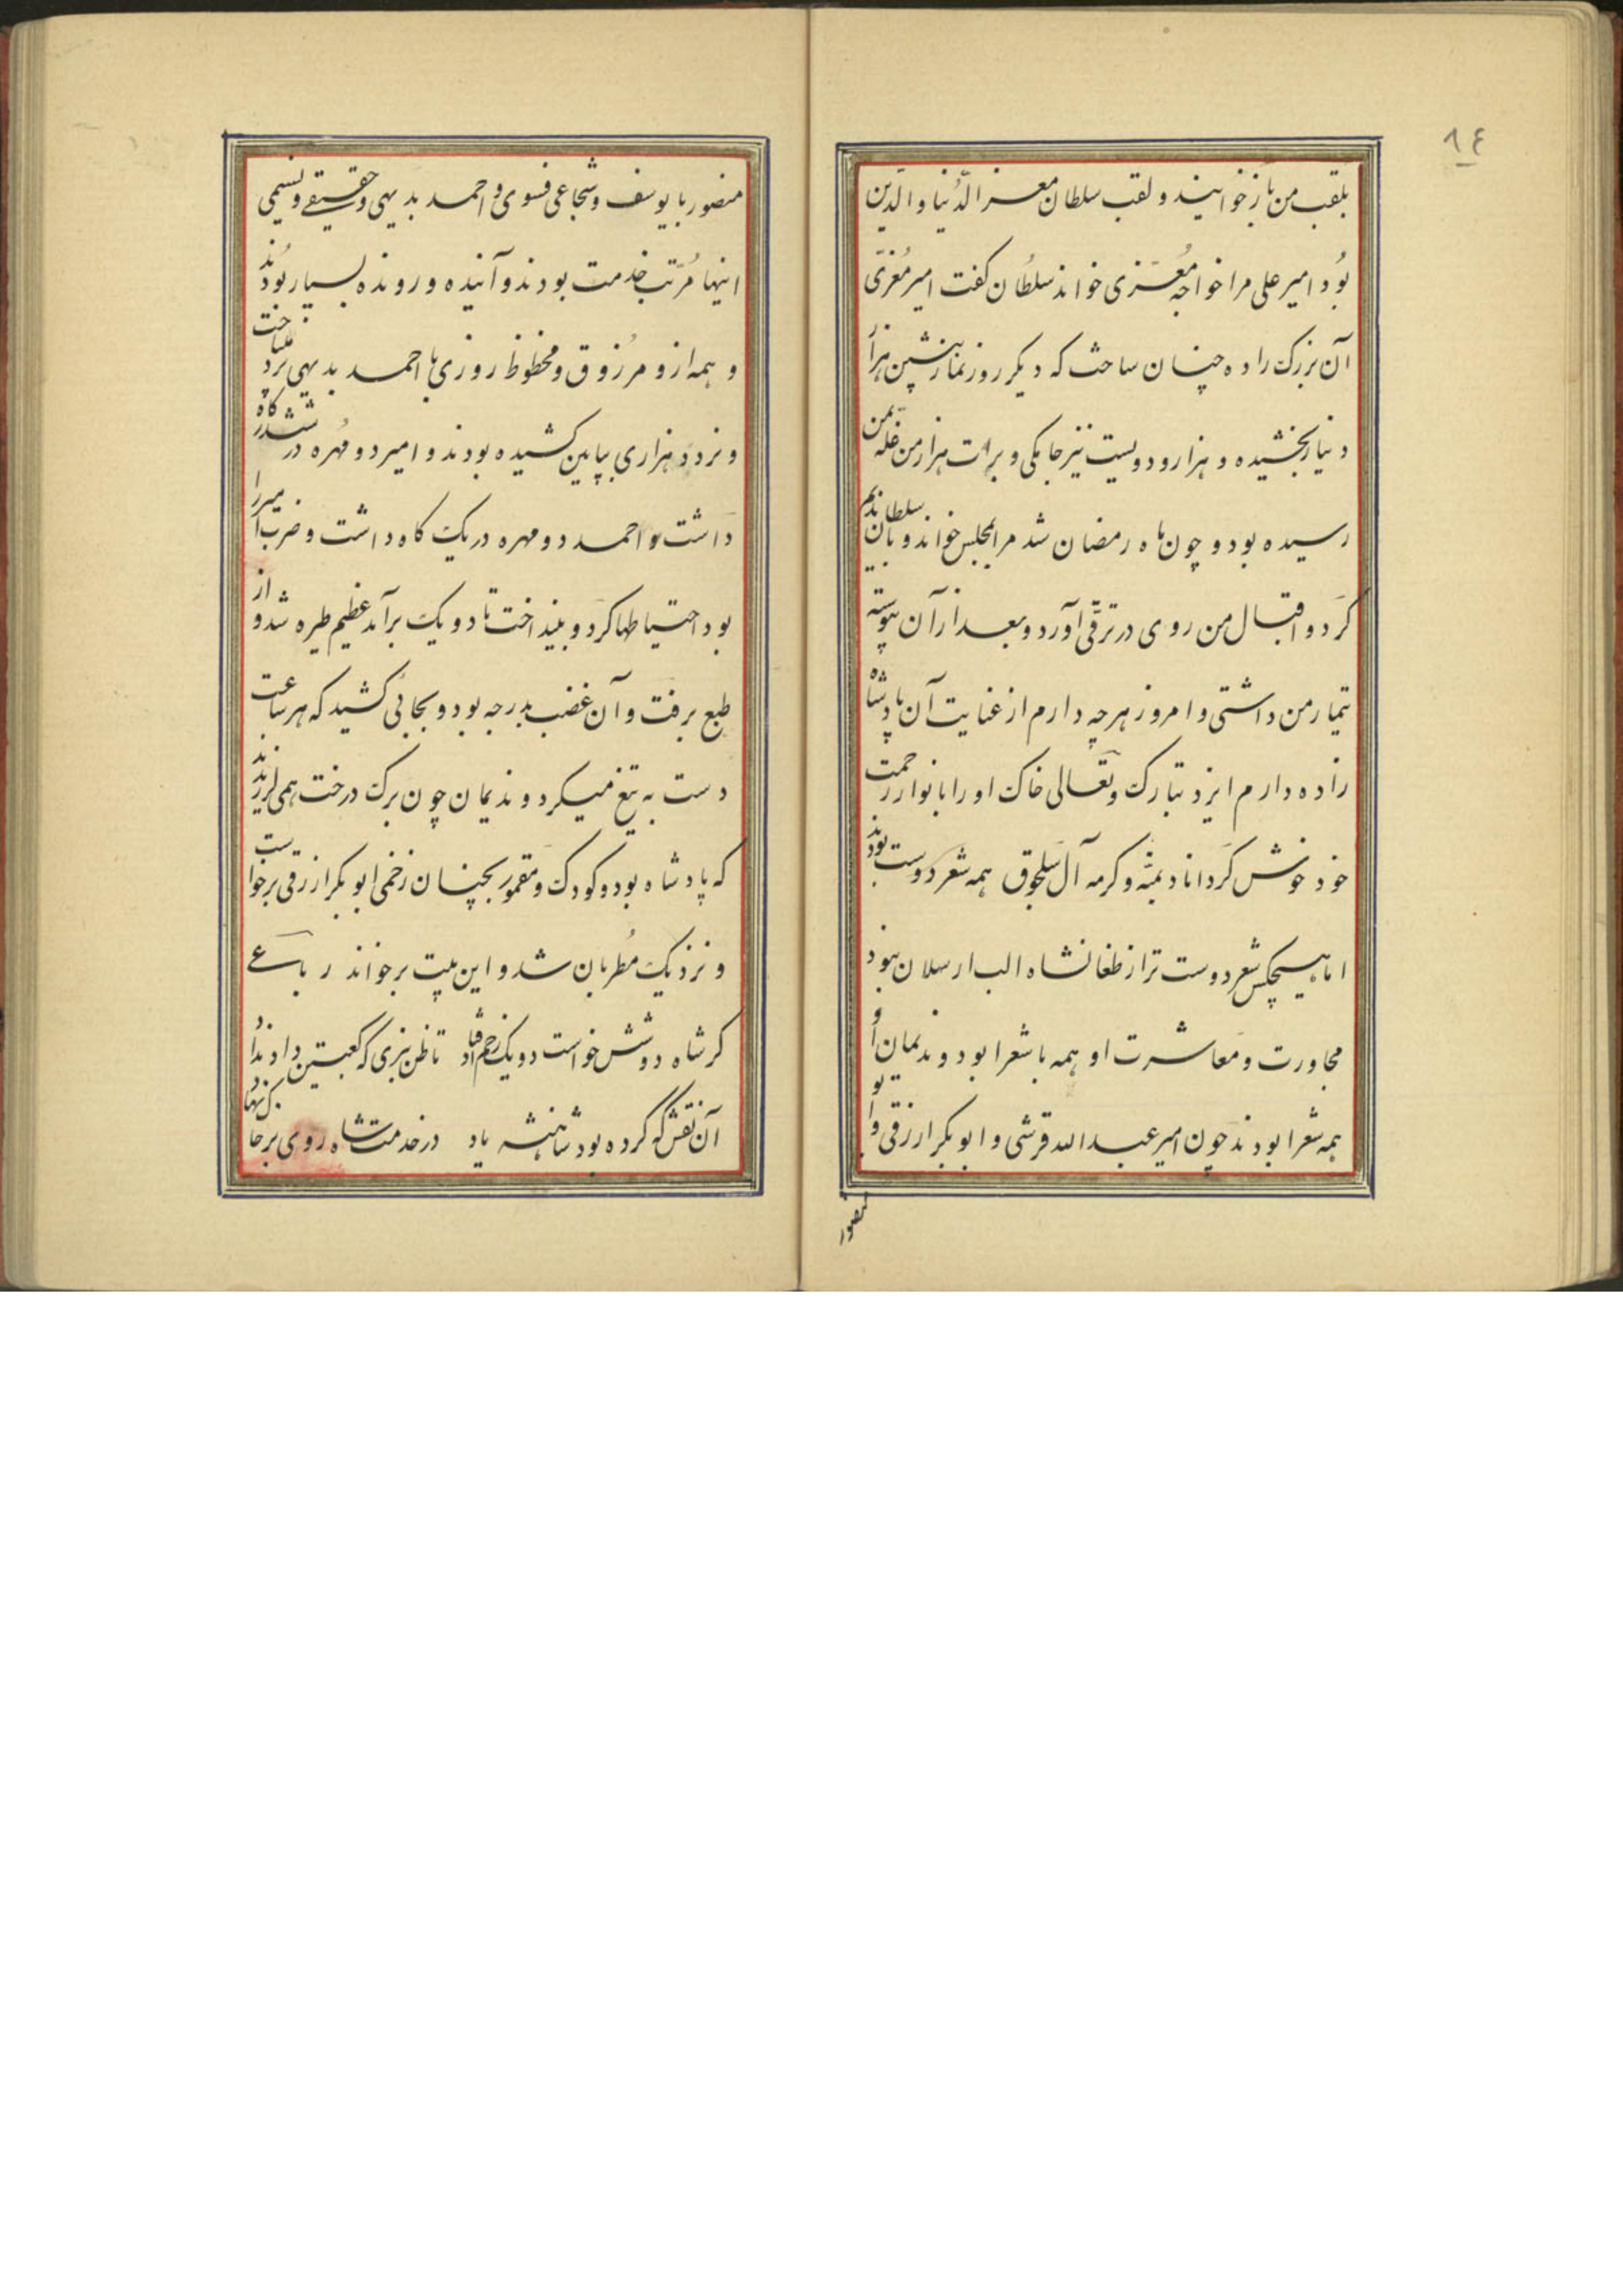 ٨٤
بلقب من باز خوانیند و لقب سلطان معز الدّنیا والدّین
بُود امیر علی مرا خواجه مُعزّی خواند سلطان کفت امیر مُعزّی
آن بزرک زاده چنان ساخت که دیکر روز نماز پیشین هزار
دنیار بخشیده و هزار و دویست نیز جامکی و برات هزار من غله بمن
رسیده بود و چون ماه رمضان شد مرا بمجلس خواند و با سلطان ندیم
کرد و اقبال من روی در ترقّی آورد و بعد از آن پیوسته
تیمار من داشتی و امروز هرچه دارم از عنایت آن پادشاه
زاده دارم ایزد تبارک و تعالی خاک او را بانوار رحمت
خود خوش کرداناد بمنّه و کرمه آل سلجوق همه شعر دوست بودند
اما هیچکس شعر دوست تر از طغانشاه الب ارسلان نبود
مجاورت و معاشرت او همه با شعرا بود و ندیمان او
همه شعرا بودند چون امیر عبدالله قرشی و ابوبکر ازرقی و ابو
منصور
منصور با یوسف و شجاعی فسوی و احمد بدیهی و حقیقی و نسیمی
اینها مُرتّب خدمت بودند و آینده و رونده بسیار بُودند
و همه ازو مرزوق و محظوظ روزی با احمد بدیهی نرد میباخت
و نرد ده هزاری بپایین کشیده بودند و امیر دو مُهره در ششدر کاه
داشت و احمد دو مهره در یک کاه داشت و ضرب امیر را
بود احتیاطها کرد و بینداخت تا دو یک برآمد عظیم طیره شد و از
طبع برفت و آن غضب بدرجه بود و بجائی کشید که هر ساعت
دست به تیغ میکرد و ندیمان چون برک درخت همی لرزیدند
که پادشاه بود و کودک و مقمور بچنان زخمی ابوبکر ازرقی برخواست
و نزدیک مُطربان شد و این بیت برخواند رباعی
کر شاه دو شش خواست دو یک زخم افتاد تا ظن نبری که کعبتین داد نداد
آن نقش که کرده بود شاهنشه یاد در خدمت شاه روی بر خاک نهاد